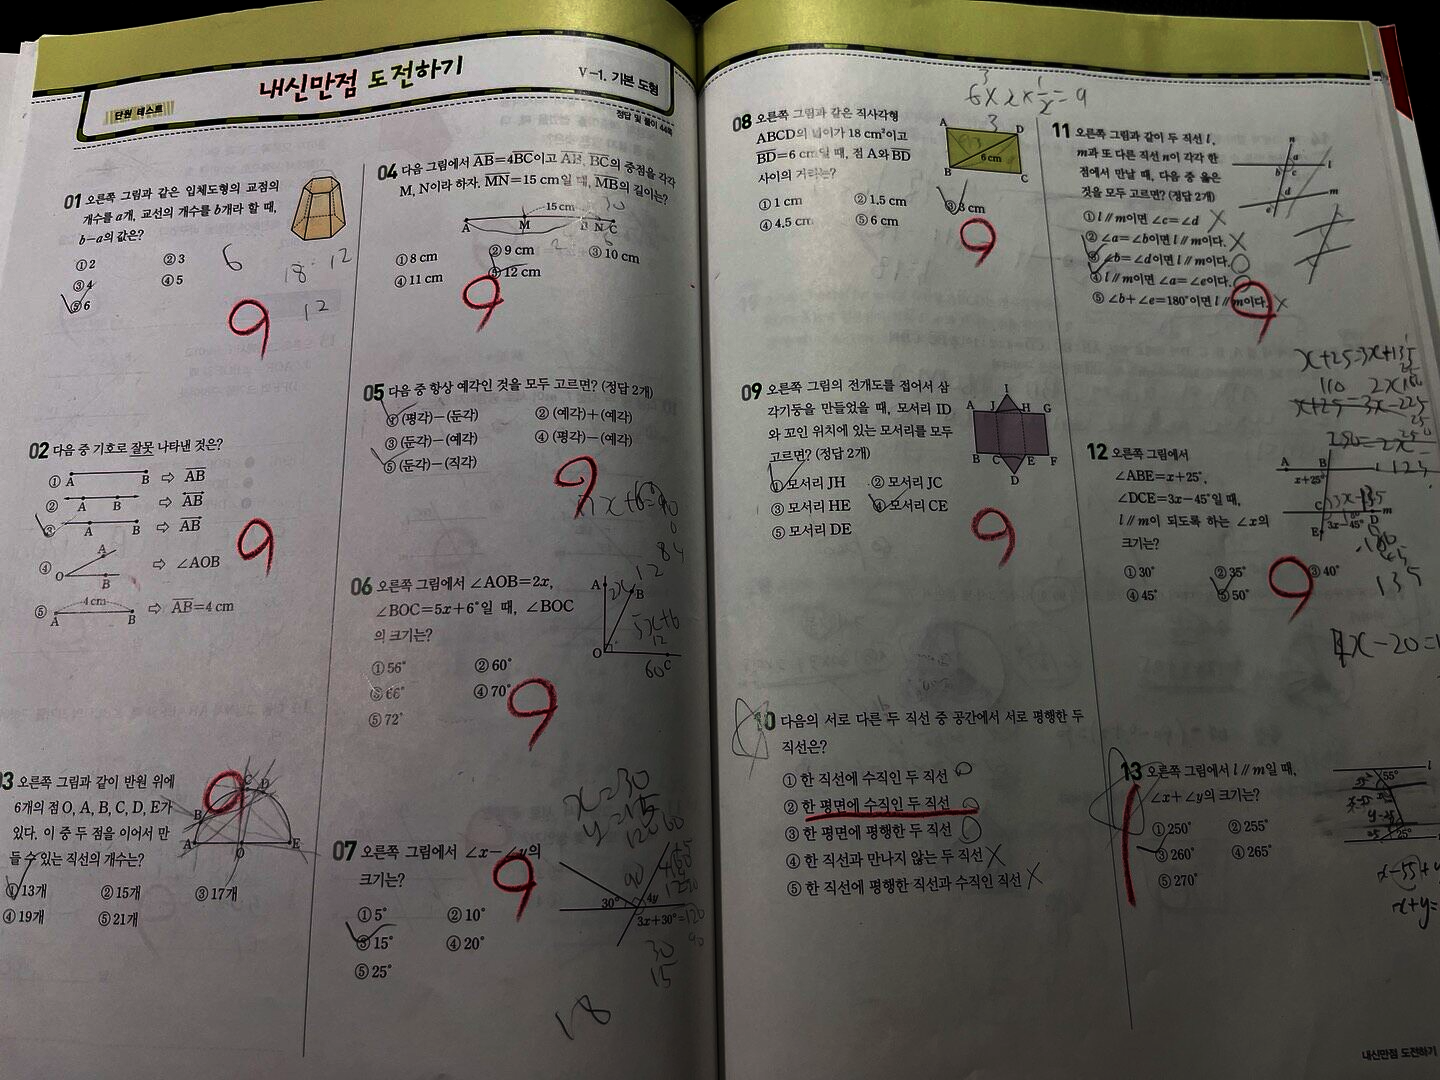 내신만점 도전하기
단원 테스트
V-1. 기본 도형
정답 및 풀이 44쪽
01 오른쪽 그림과 같은 입체도형의 교점의
개수를 a개, 교선의 개수를 b개라 할 때,
b-a의 값은?
① 2 ② 3
③ 4 ④ 5
⑤ 6
6
18 - 12
12
9
02 다음 중 기호로 잘못 나타낸 것은?
① A B ⇨ AB
② A B ⇨ AB
③ A B ⇨ AB
④ A O B ⇨ ∠AOB
⑤ 4 cm A B ⇨ AB=4 cm
9
03 오른쪽 그림과 같이 반원 위에
6개의 점 O, A, B, C, D, E가
있다. 이 중 두 점을 이어서 만
들 수 있는 직선의 개수는?
A B C D O E
① 13개 ② 15개 ③ 17개
④ 19개 ⑤ 21개
9
04 다음 그림에서 AB=4BC이고 AB, BC의 중점을 각각
M, N이라 하자. MN=15 cm일 때, MB의 길이는?
15 cm
A M B N C
① 8 cm ② 9 cm ③ 10 cm
④ 11 cm ⑤ 12 cm
9
05 다음 중 항상 예각인 것을 모두 고르면? (정답 2개)
① (평각)-(둔각) ② (예각)+(예각)
③ (둔각)-(예각) ④ (평각)-(예각)
⑤ (둔각)-(직각)
9
84
12
06 오른쪽 그림에서 ∠AOB=2x,
∠BOC=5x+6°일 때, ∠BOC
의 크기는?
A B O C
2x
5x+6
12
60
① 56° ② 60°
③ 66° ④ 70°
⑤ 72°
9
x=30
y=15
07 오른쪽 그림에서 ∠x-∠y의
크기는?
30° 4y
3x+30°=120
90
① 5° ② 10°
③ 15° ④ 20°
⑤ 25°
9
30
15
18
6×2×1/2=9
08 오른쪽 그림과 같은 직사각형
ABCD의 넓이가 18 cm²이고
BD=6 cm일 때, 점 A와 BD
사이의 거리는?
A D B C
6 cm
3
① 1 cm ② 1.5 cm ③ 3 cm
④ 4.5 cm ⑤ 6 cm
9
09 오른쪽 그림의 전개도를 접어서 삼
각기둥을 만들었을 때, 모서리 ID
와 꼬인 위치에 있는 모서리를 모두
고르면? (정답 2개)
I
A J H G
B C E F
D
① 모서리 JH ② 모서리 JC
③ 모서리 HE ④ 모서리 CE
⑤ 모서리 DE
9
10 다음의 서로 다른 두 직선 중 공간에서 서로 평행한 두
직선은?
① 한 직선에 수직인 두 직선
② 한 평면에 수직인 두 직선
③ 한 평면에 평행한 두 직선
④ 한 직선과 만나지 않는 두 직선 X
⑤ 한 직선에 평행한 직선과 수직인 직선 X
11 오른쪽 그림과 같이 두 직선 l,
m과 또 다른 직선 n이 각각 한
점에서 만날 때, 다음 중 옳은
것을 모두 고르면? (정답 2개)
n
a l
b c
d m
e
① l∥m이면 ∠c=∠d X
② ∠a=∠b이면 l∥m이다. X
③ ∠b=∠d이면 l∥m이다.
④ l∥m이면 ∠a=∠e이다.
⑤ ∠b+∠e=180°이면 l∥m이다. X
9
12 오른쪽 그림에서
∠ABE=x+25°,
∠DCE=3x-45°일 때,
l∥m이 되도록 하는 ∠x의
크기는?
A B l
x+25°
C D m
3x-45°
E
① 30° ② 35° ③ 40°
④ 45° ⑤ 50°
9
135
13 오른쪽 그림에서 l∥m일 때,
∠x+∠y의 크기는?
55°
25°
① 250° ② 255°
③ 260° ④ 265°
⑤ 270°
x+y=
내신만점 도전하기